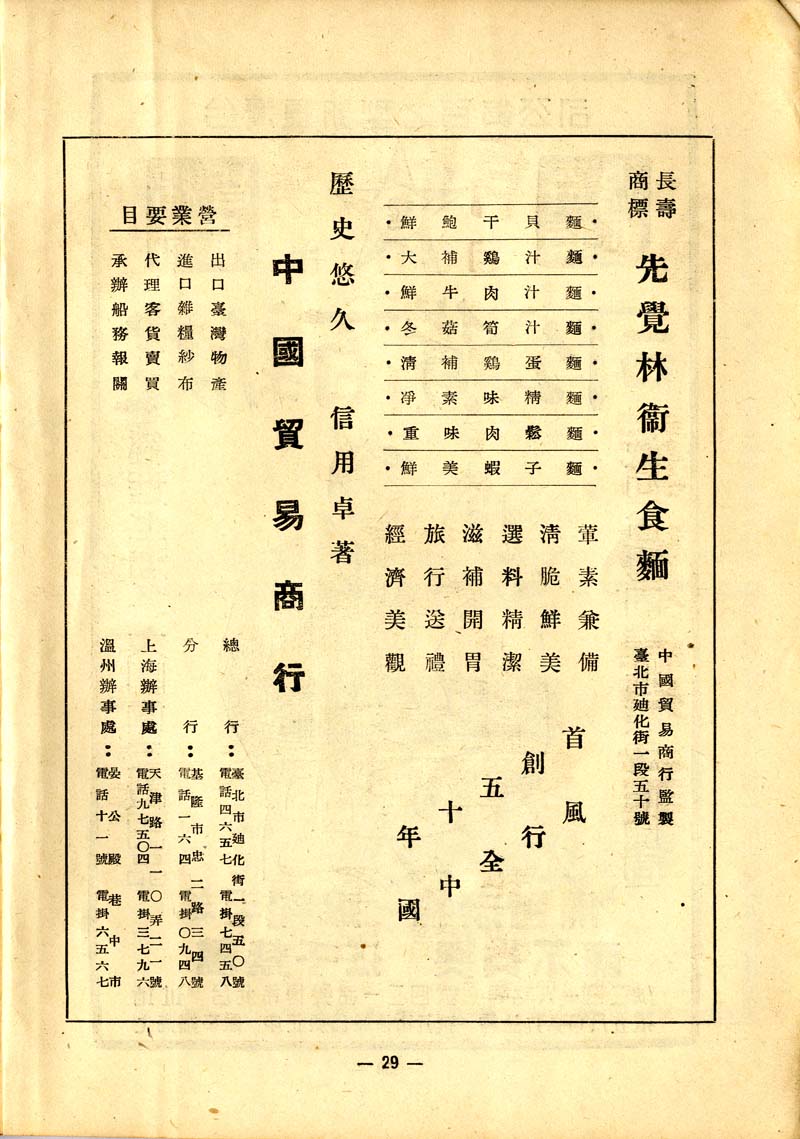 長壽
商標
先覺林衞生食麵
中國貿易商行監製
臺北市廸化街一段五十號
·鮮鮑干貝麵·
·大補鷄汁麵·
·鮮牛肉汁麵·
·冬菇筍汁麵·
·淸補鷄蛋麵·
·淨素味精麵·
·重味肉鬆麵·
·鮮美蝦子麵·
葷素兼備
淸脆鮮美
選料精潔
滋補開胃
旅行送禮
經濟美觀
首創五十年
風行全中國
歷史悠久 信用卓著
中國貿易商行
營業要目
出口臺灣物產
進口雜糧紗布
代理客貨賣買
承辦船務報關
總行：臺北市廸化街一段五〇號
電話四六五七 電掛七四五八
分行：基隆市忠二路三四號
電話一六四 電掛〇九四八
上海辦事處：天津路一一〇弄二一號
電話九七五〇四 電掛三七九六
溫州辦事處：晏公殿巷中市
電話十一號 電掛六五六七
— 29 —